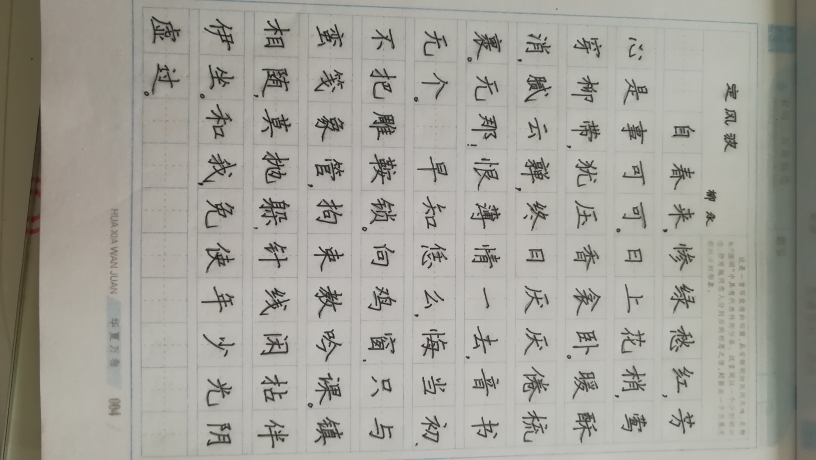 定风波
柳永
自春来,惨绿愁红,芳
心是事可可。日上花梢,莺
穿柳带,犹压香衾卧。暖酥
消,腻云亸,终日厌厌倦梳
裹。无那!恨薄情一去,音书
无个。早知恁么,悔当初,
不把雕鞍锁。向鸡窗,只与
蛮笺象管,拘束教吟课。镇
相随,莫抛躲,针线闲拈伴
伊坐。和我,免使年少光阴
虚过。
HUA XIA WAN JUAN
华夏万卷
004